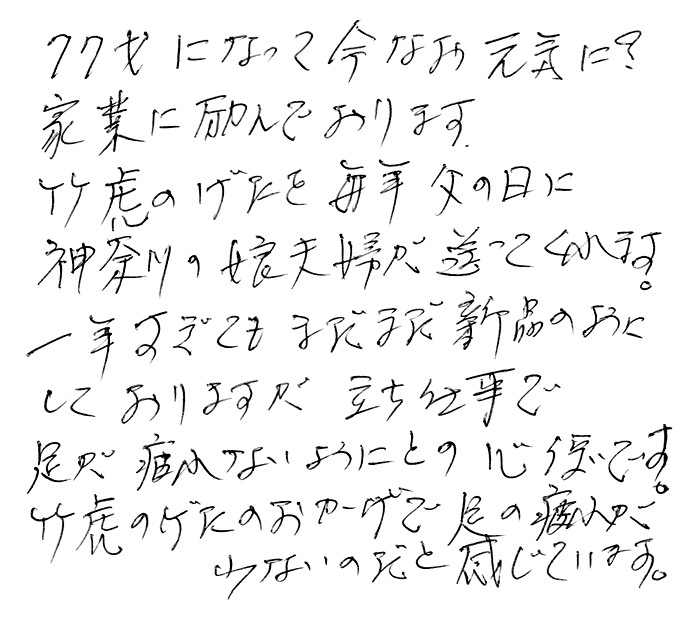 77才になって今なお元気に?
家業に励んでおります.
竹虎のげたを毎年父の日に
神奈川の娘夫婦が送ってくれます。
一年すぎてもまだまだ新品のように
しておりますが立ち仕事で
足が疲れないようにとの心使です。
竹虎のゲたのおかげで足の疲れが
少ないのだと感じています。